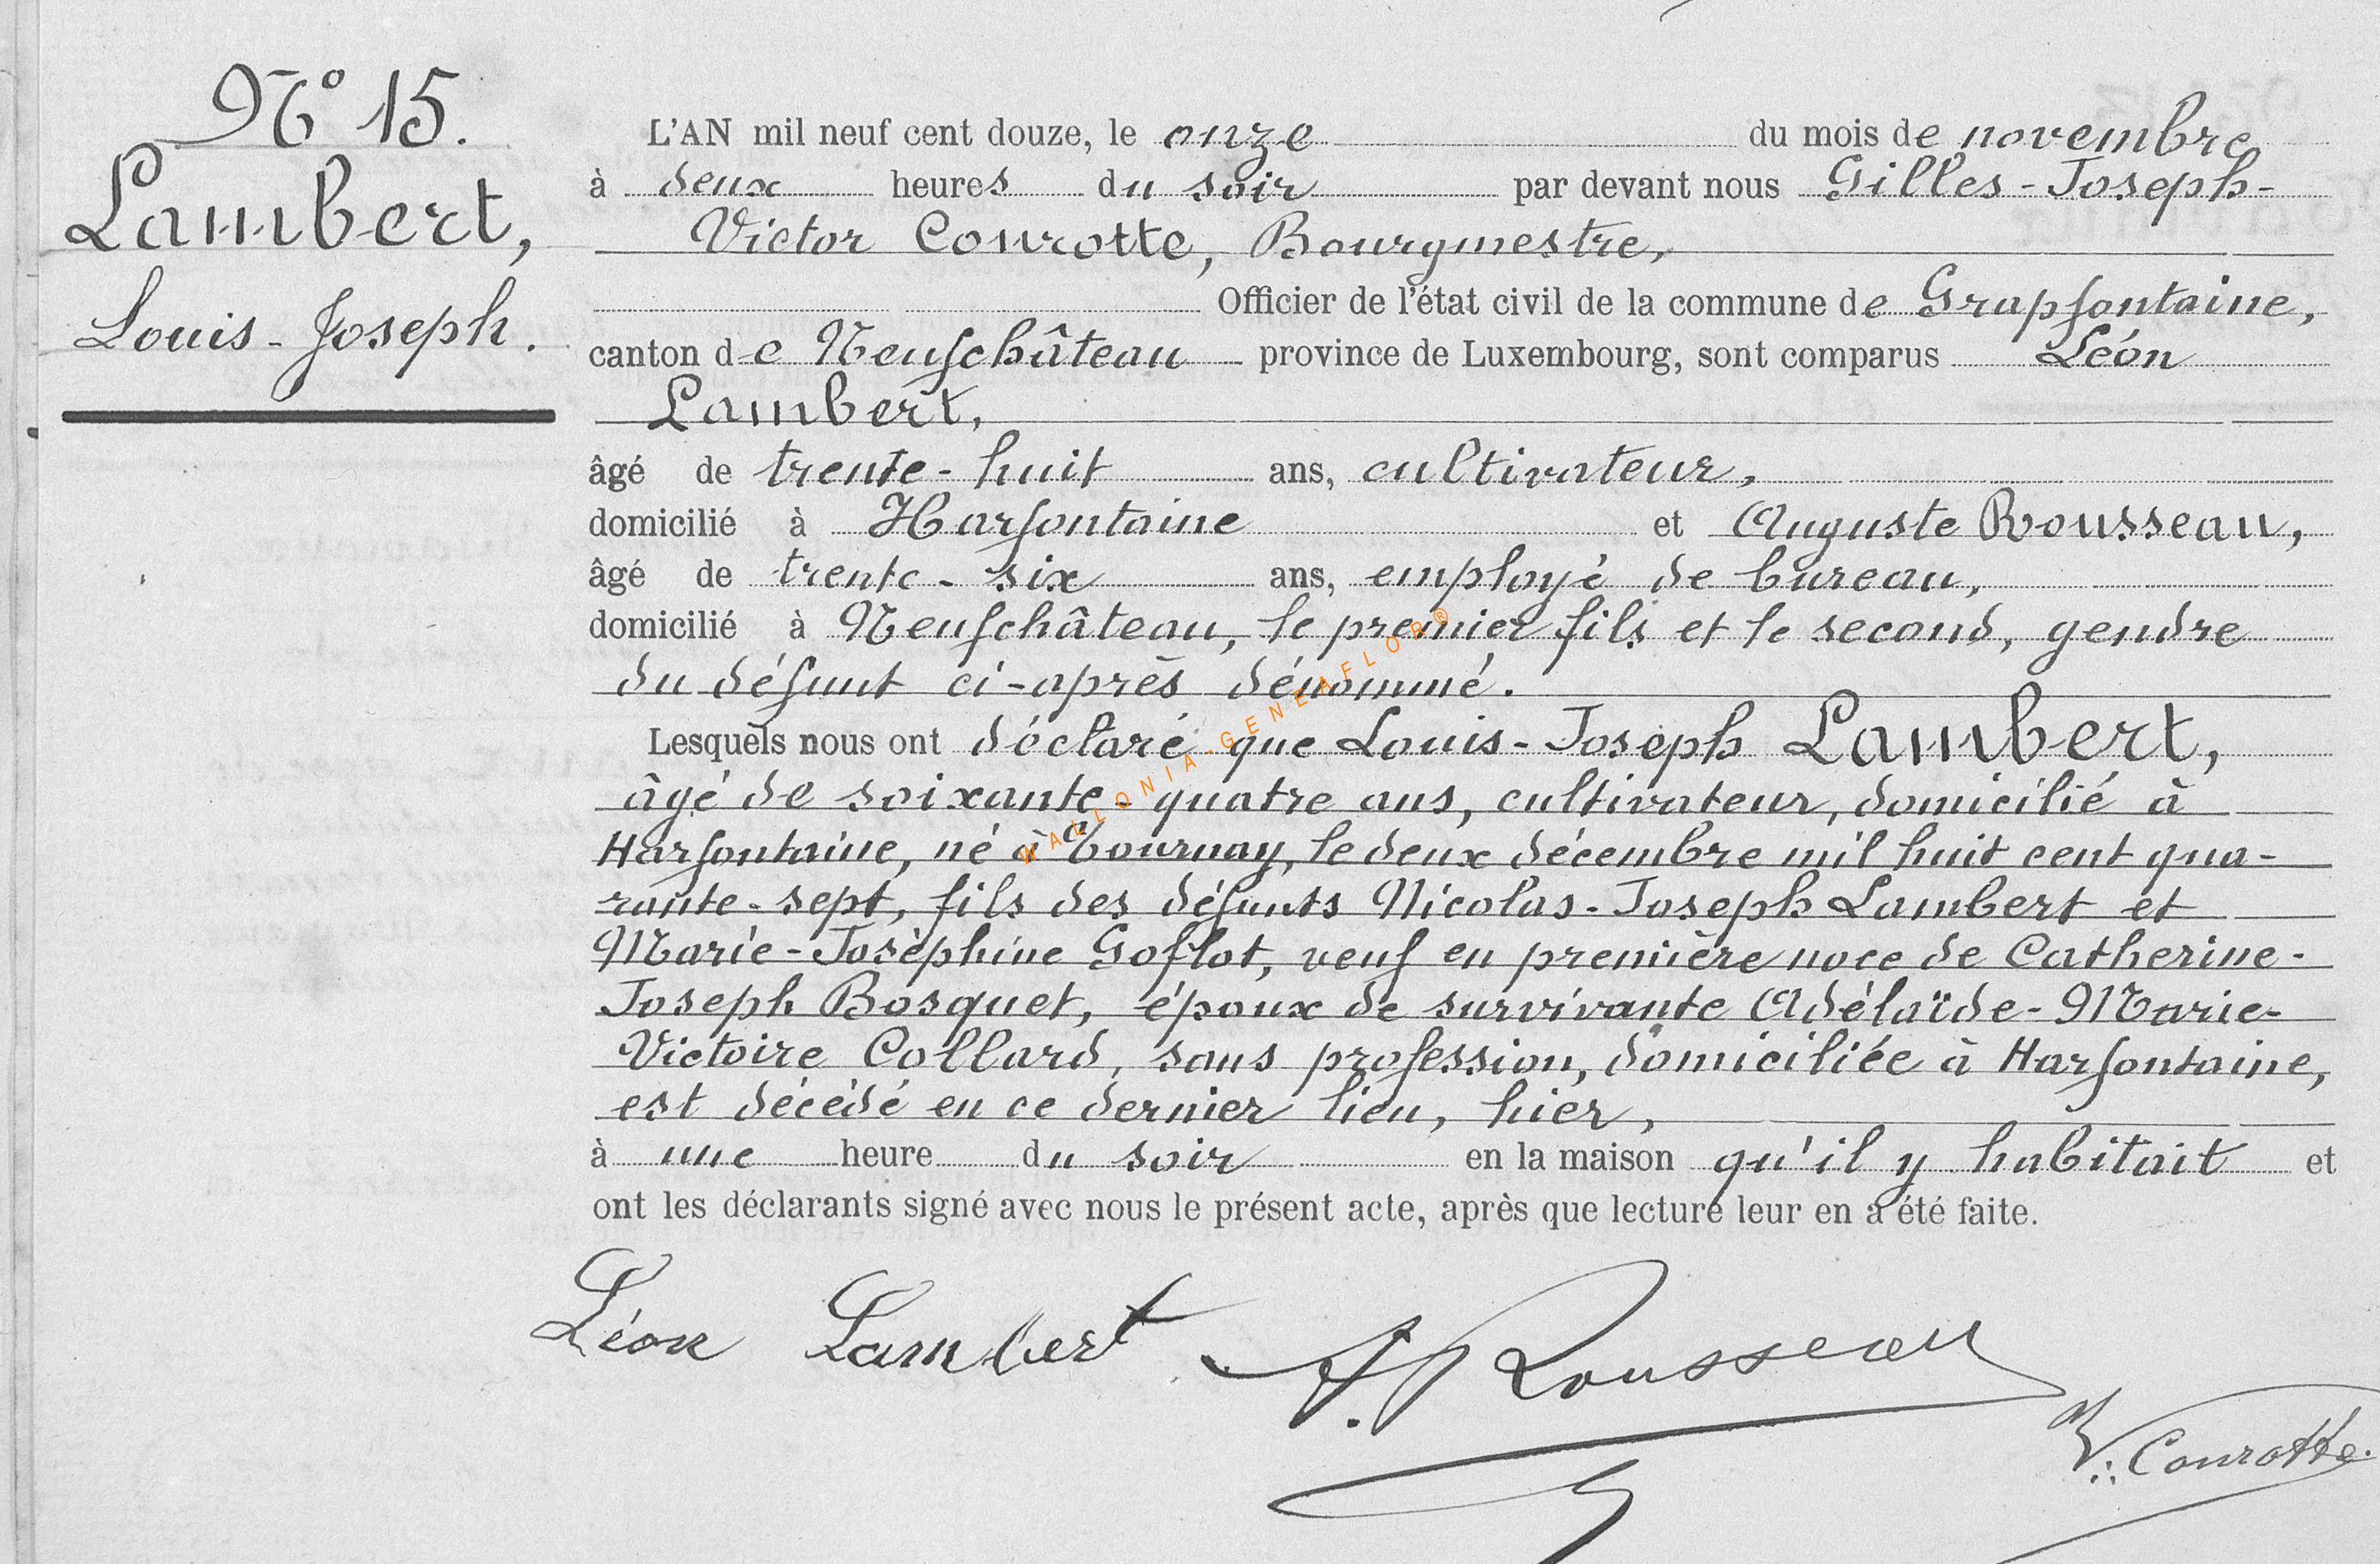 N° 15.
Lambert,
Louis-Joseph.
L'AN mil neuf cent douze, le onze du mois de novembre
à deux heures du soir par devant nous Gilles-Joseph-
Victor Conrotte, Bourgmestre,
Officier de l'état civil de la commune de Grapfontaine,
canton de Neufchâteau province de Luxembourg, sont comparus Léon
Lambert,
âgé de trente-huit ans, cultivateur,
domicilié à Harfontaine et Auguste Rousseau,
âgé de trente-six ans, employé de bureau,
domicilié à Neufchâteau, le premier fils et le second, gendre
du défunt ci-après dénommé.
Lesquels nous ont déclaré que Louis-Joseph Lambert,
âgé de soixante-quatre ans, cultivateur, domicilié à
Harfontaine, né à Tournay, le deux décembre mil huit cent qua-
rante-sept, fils des défunts Nicolas-Joseph Lambert et
Marie-Josèphine Goflot, veuf en première noce de Catherine-
Joseph Bosquet, époux de survivante Adélaïde-Marie-
Victoire Collard, sans profession, domiciliée à Harfontaine,
est décédé en ce dernier lieu, hier,
à une heure du soir en la maison qu'il y habitait et
ont les déclarants signé avec nous le présent acte, après que lecture leur en a été faite.
Léon Lambert A. Rousseau
V. Conrotte.
WALLONIA-GENEAFLOR®